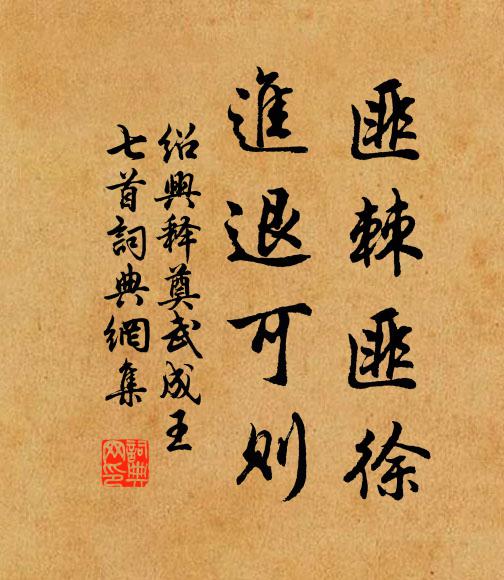 匪棘匪徐
進退可則
绍興释奠武成王
七首詞典網集
詞典网印